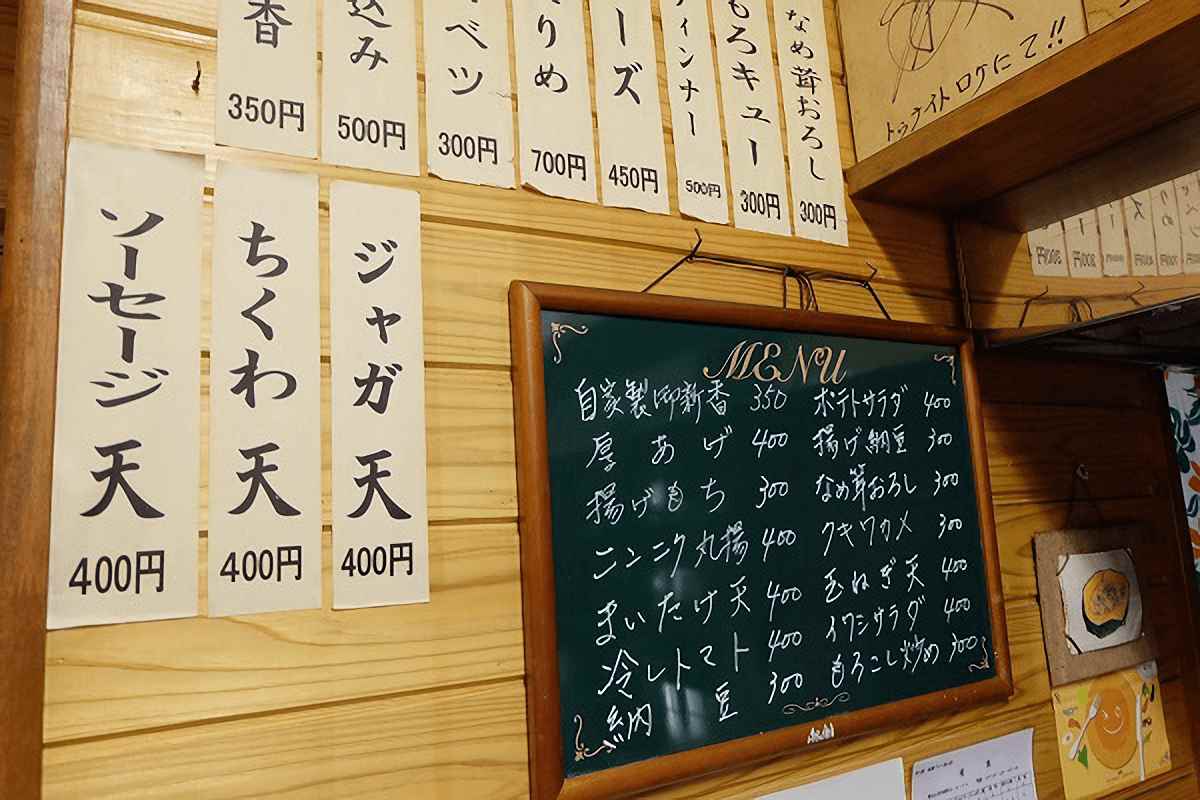 香 350円
込み 500円
ベツ 300円
りめ 700円
ーズ 450円
ィンナー 500円
もろキュー 300円
なめ茸おろし 300円
トゥナイトロケにて!!
ソーセージ天 400円
ちくわ天 400円
ジャガ天 400円
MENU
自家製御新香 350
厚あげ 400
揚げもち 300
ニンニク丸揚 400
まいたけ天 400
冷しトマト 400
納豆 300
ポテトサラダ 400
揚げ納豆 300
なめ茸おろし 300
クキワカメ 300
玉ねぎ天 400
イワシサラダ 400
もろこし炒め 300
Asahi